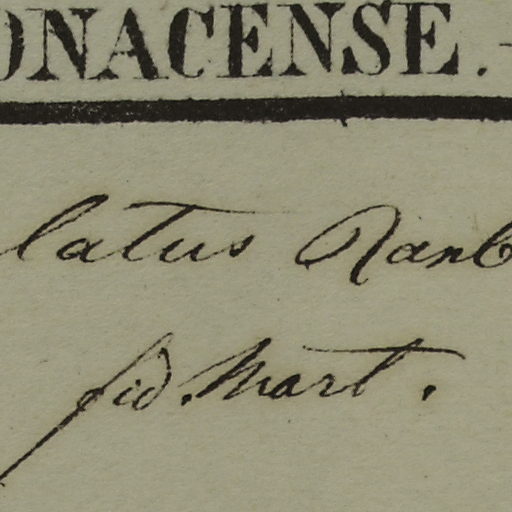 ONACENSE.-
latus Ranb
fid. Mart.